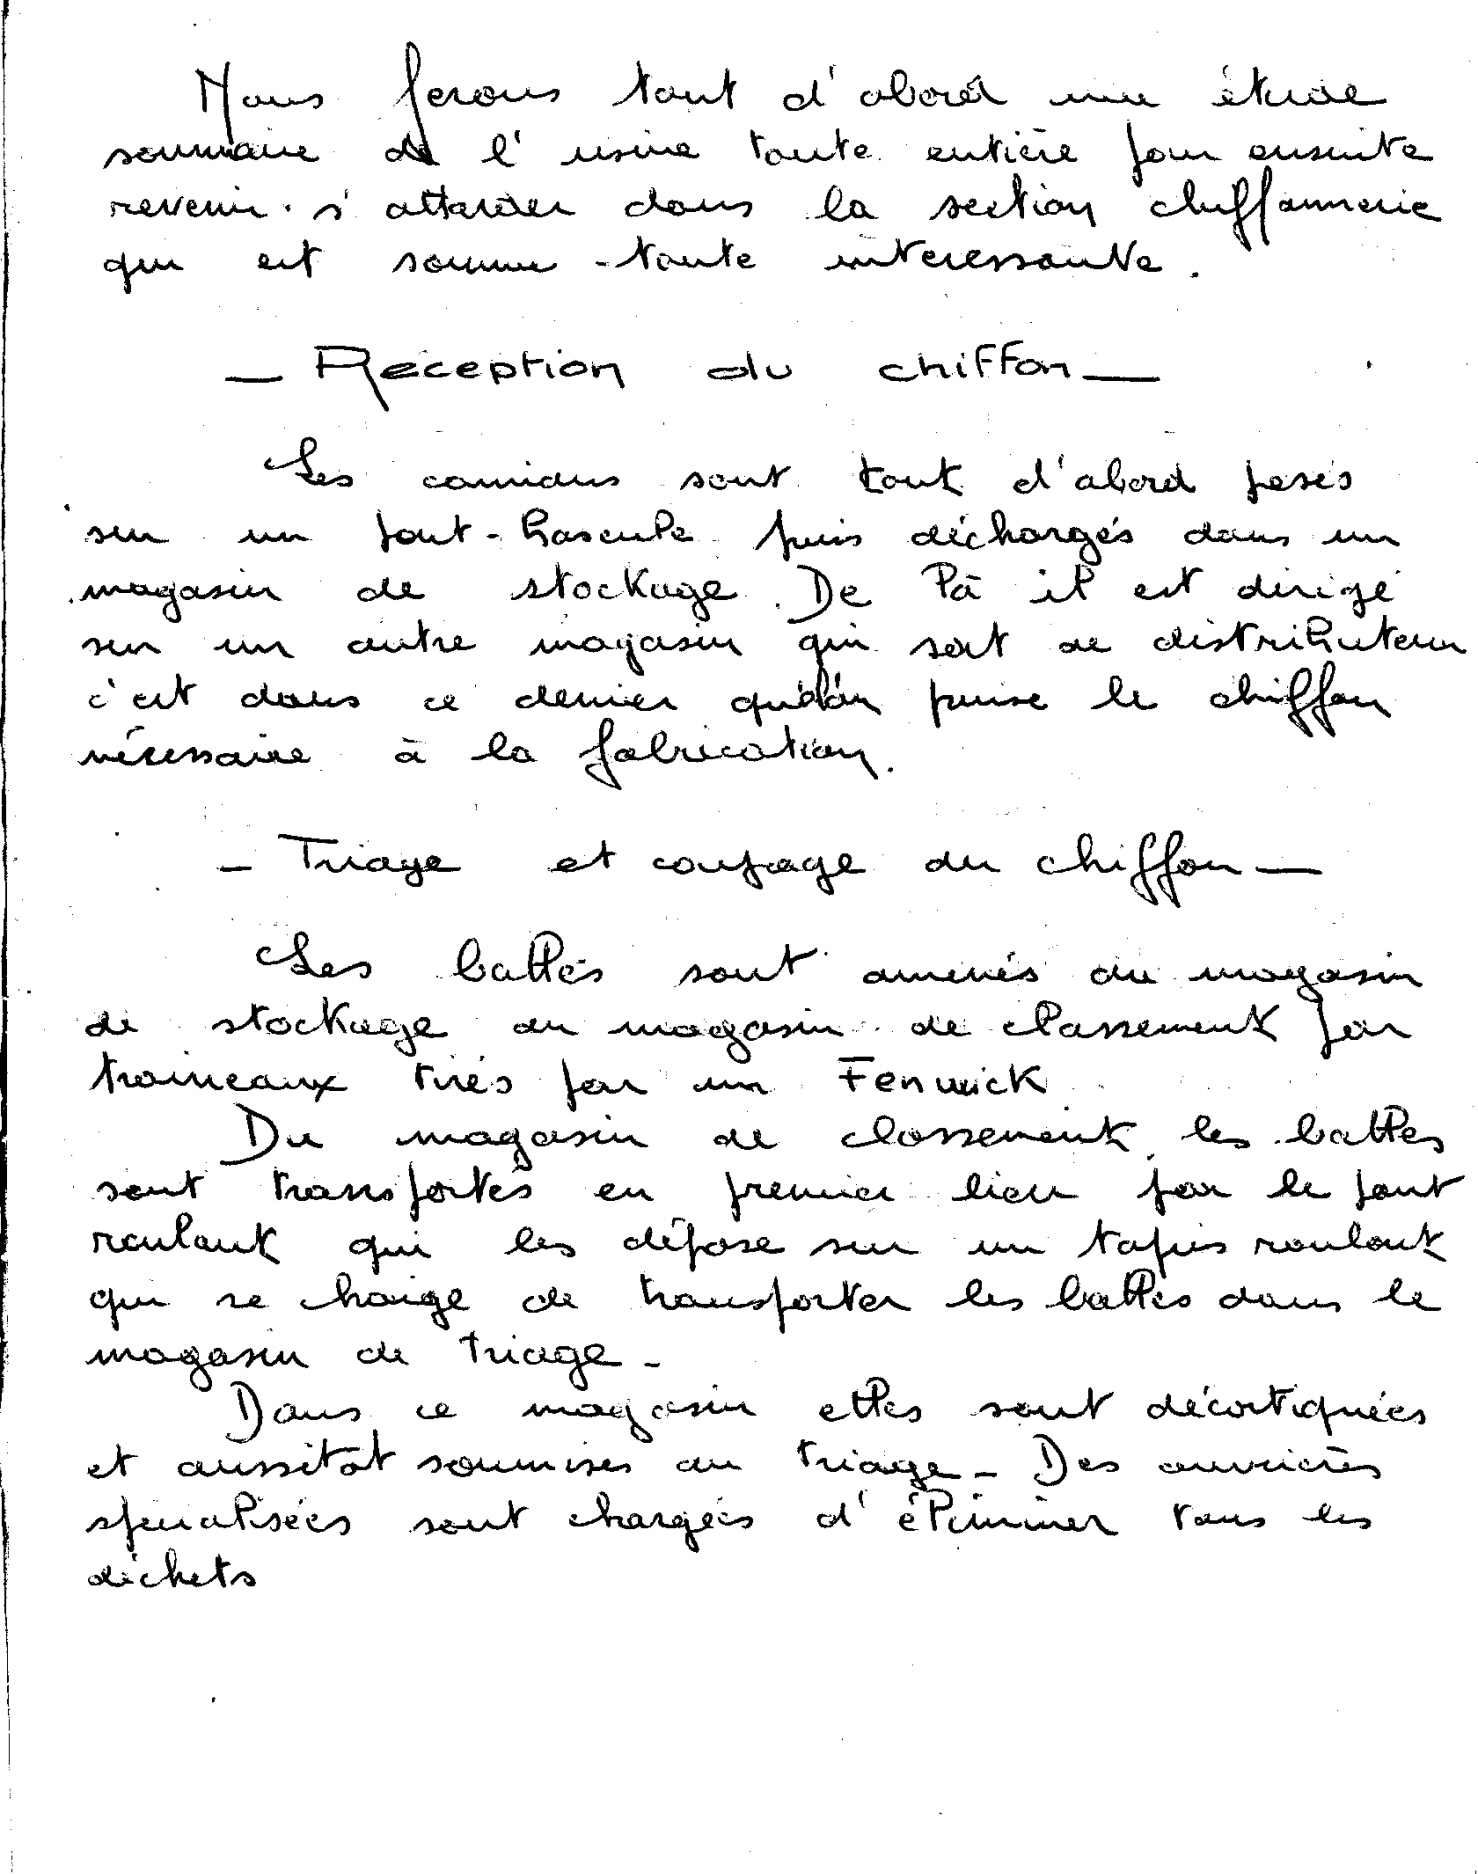 Nous ferons tout d'abord une étude
sommaire de l'usine toute entière pour ensuite
revenir s'attarder dans la section chiffonnerie
qui est somme-toute interessante.
— Réception du chiffon —
Les camions sont tout d'abord pesés
sur un pont-bascule puis déchargés dans un
magasin de stockage. De là il est dirigé
sur un autre magasin qui sert de distributeur
c'est dans ce dernier qu'on puise le chiffon
nécessaire à la fabrication.
— Triage et coupage du chiffon —
Les balles sont amenés du magasin
de stockage au magasin de classement par
traineaux tirés par un Fenwick
Du magasin de classement les balles
sont transportés en premier lieu par le pont
roulant qui les dépose sur un tapis roulant
qui se charge de transporter les balles dans le
magasin de triage -
Dans ce magasin elles sont décortiquées
et aussitôt soumises au triage - Des ouvrières
spécialisées sont chargées d'éliminer tous les
déchets